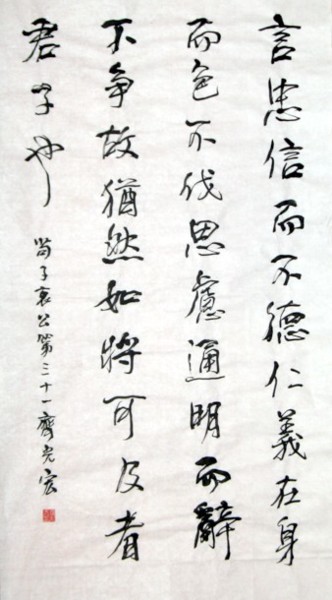 言忠信而不德仁義在身
而色不伐思慮通明而辭
不争故猶然如將可及者
君子也
荀子哀公第三十一齊光宏